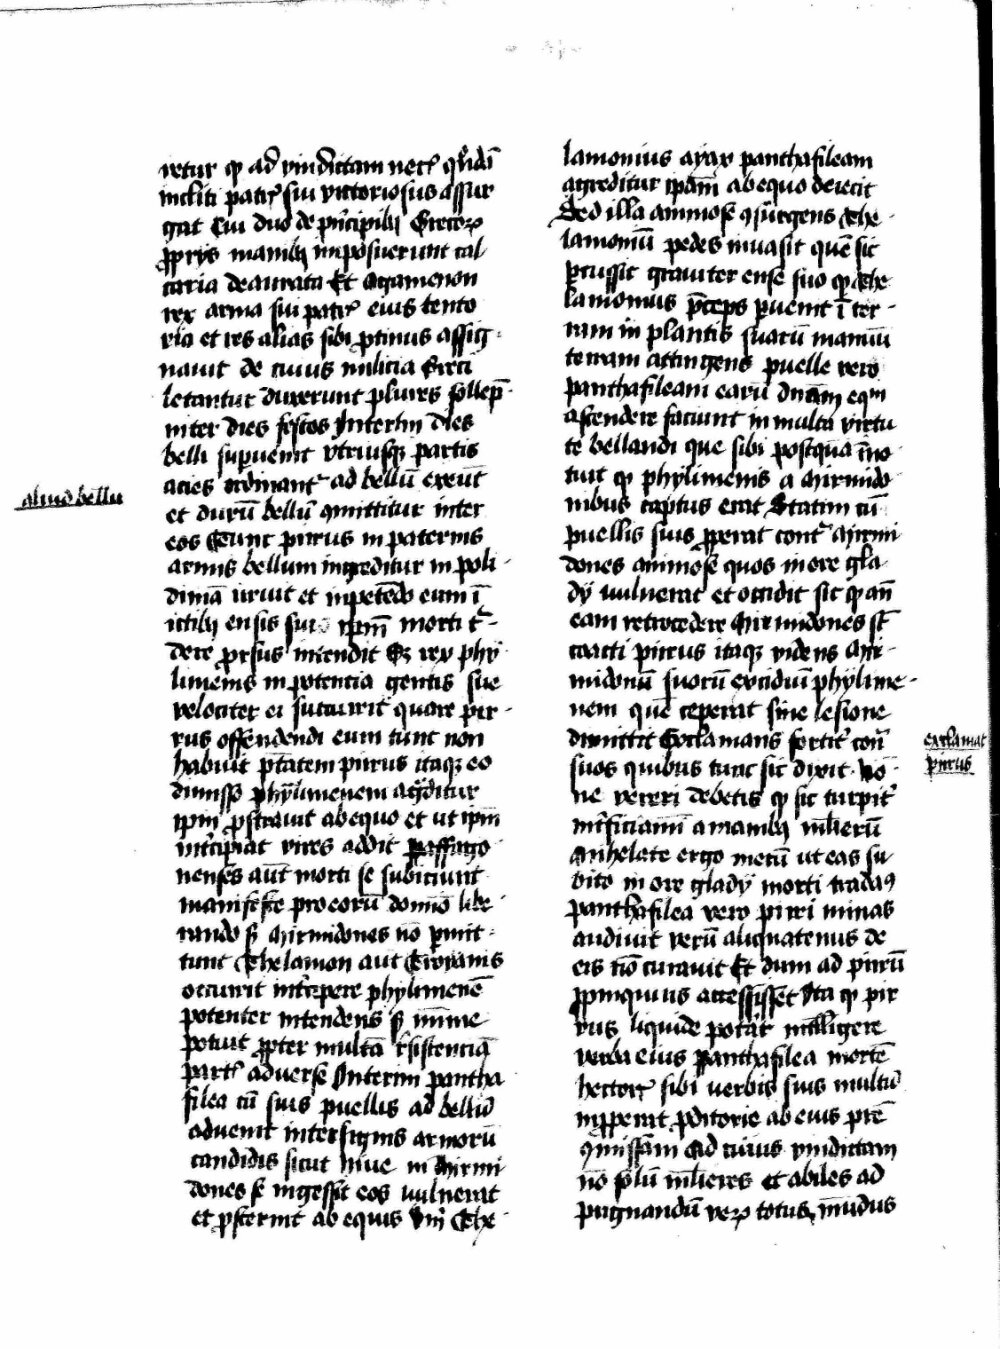 retur ꝙ ad vindictam nec̄ qͥdā
incliti patꝭ sui victoriosus assur
gat Cui duo de pͥncipibꝫ Grecoꝝ
ꝓprijs manibꝫ imposuerunt cal
caria deaurata Et Agamenon
rex arma sui patꝭ eius tento
ria et res alias sibi ꝓtinus assig-
nauit de cuius milicia Greci
letantur duxerunt plures sollep̄-
niter dies festos Interim dies
belli suꝑuenit vtriusqꝫ partis
acies ordinant᷑ ad bellū exeūt
et durū bellū ꝯmittitur inter
eos Tunc pirrus in paternis
armis bellum ingreditur in poli-
dimā irruit et inpetēdo eum ī
ictibꝫ ensis sui ipm̄ morti t᷑-
dere ꝓrsus intendit Sꝫ rex phy-
limenis in potencia gentis sue
velociter ei succurrit quare pir-
rus offendendi eum tunc non
habuit ptātem pirrus itaqꝫ eo
dimisso phylimenem agͥditur
ipm̄ ꝓstrauit ab equo et ut ipm̄
int᷑cipiat vires addit paffago-
nenses aūt morti se subiciunt
manifeste pro eorū domīo libe-
rando sꝫ Mirmidones nō ꝑmit-
tunt Thelamon aut Troyanis
occurrit int᷑cipere phylimenē
potenter intendens sꝫ mīme
potuit ꝓpter multā r̄sistenciā
partꝭ aduerse Interim pantha
silea cū suis puellis ad bellū
aduenit intersignis armorū
candidis sicut niue in Mirmi
dones se ingessit eos uulnerat
et ꝓsternit ab equis Vn̄ The-
aliud bellū
lamonius ayax panthasileam
agreditur ipam̄ ab equo deiecit
Sed illa animose ꝯsurgens The-
lamoniū pedes inuasit quē sic
ꝑcussit grauiter ense suo ꝙ The-
lamonius p̄ceps ꝑuenit ī ter-
ram in plantis suarū manuū
terram attingens puelle vero
panthasileam earū dn̄am equm
ascendere faciunt in multa virtu
te bellandi que sibi postquā īno
tuit ꝙ phylimenis a Mirmido-
nibus captus erat Statim cū
puellis suis ꝓperat cont᷑ Mirmi
dones animose quos in ore gla-
dij uulnerat et occidit sic ꝙ an̄
eam retrocedere Mirmidones sūt
coacti pirrus itaqꝫ videns Mir-
midonū suorū excidiū phylime-
nem quē ceperat sine lesione
dimittit Exclamans fortit᷑ cont᷑
suos quibus tunc sic dixit Nō-
ne vereri debetis ꝙ sic turpit᷑
int᷑ficiamī a manibꝫ mlierū
Anhelate ergo mecū ut eas su-
bito in ore gladij morti tradaꝰ
panthasilea vero pirri minas
audiuit verū aliquatenus de
eis nō curauit Et dum ad pirrū
ꝓpinquius accessisset Ita ꝙ pir
rus liquide potͣat int̄lligere
verba eius panthasilea mortē
hectorꝭ sibi verbis suis multū
inꝓperat ꝓditorie ab eius pr̄e
ꝯmissam Ad cuius vindictam
nō solū ml̄ieres et abiles ad
pugnandū veꝝ totus mūdus
exclamat
pirrus